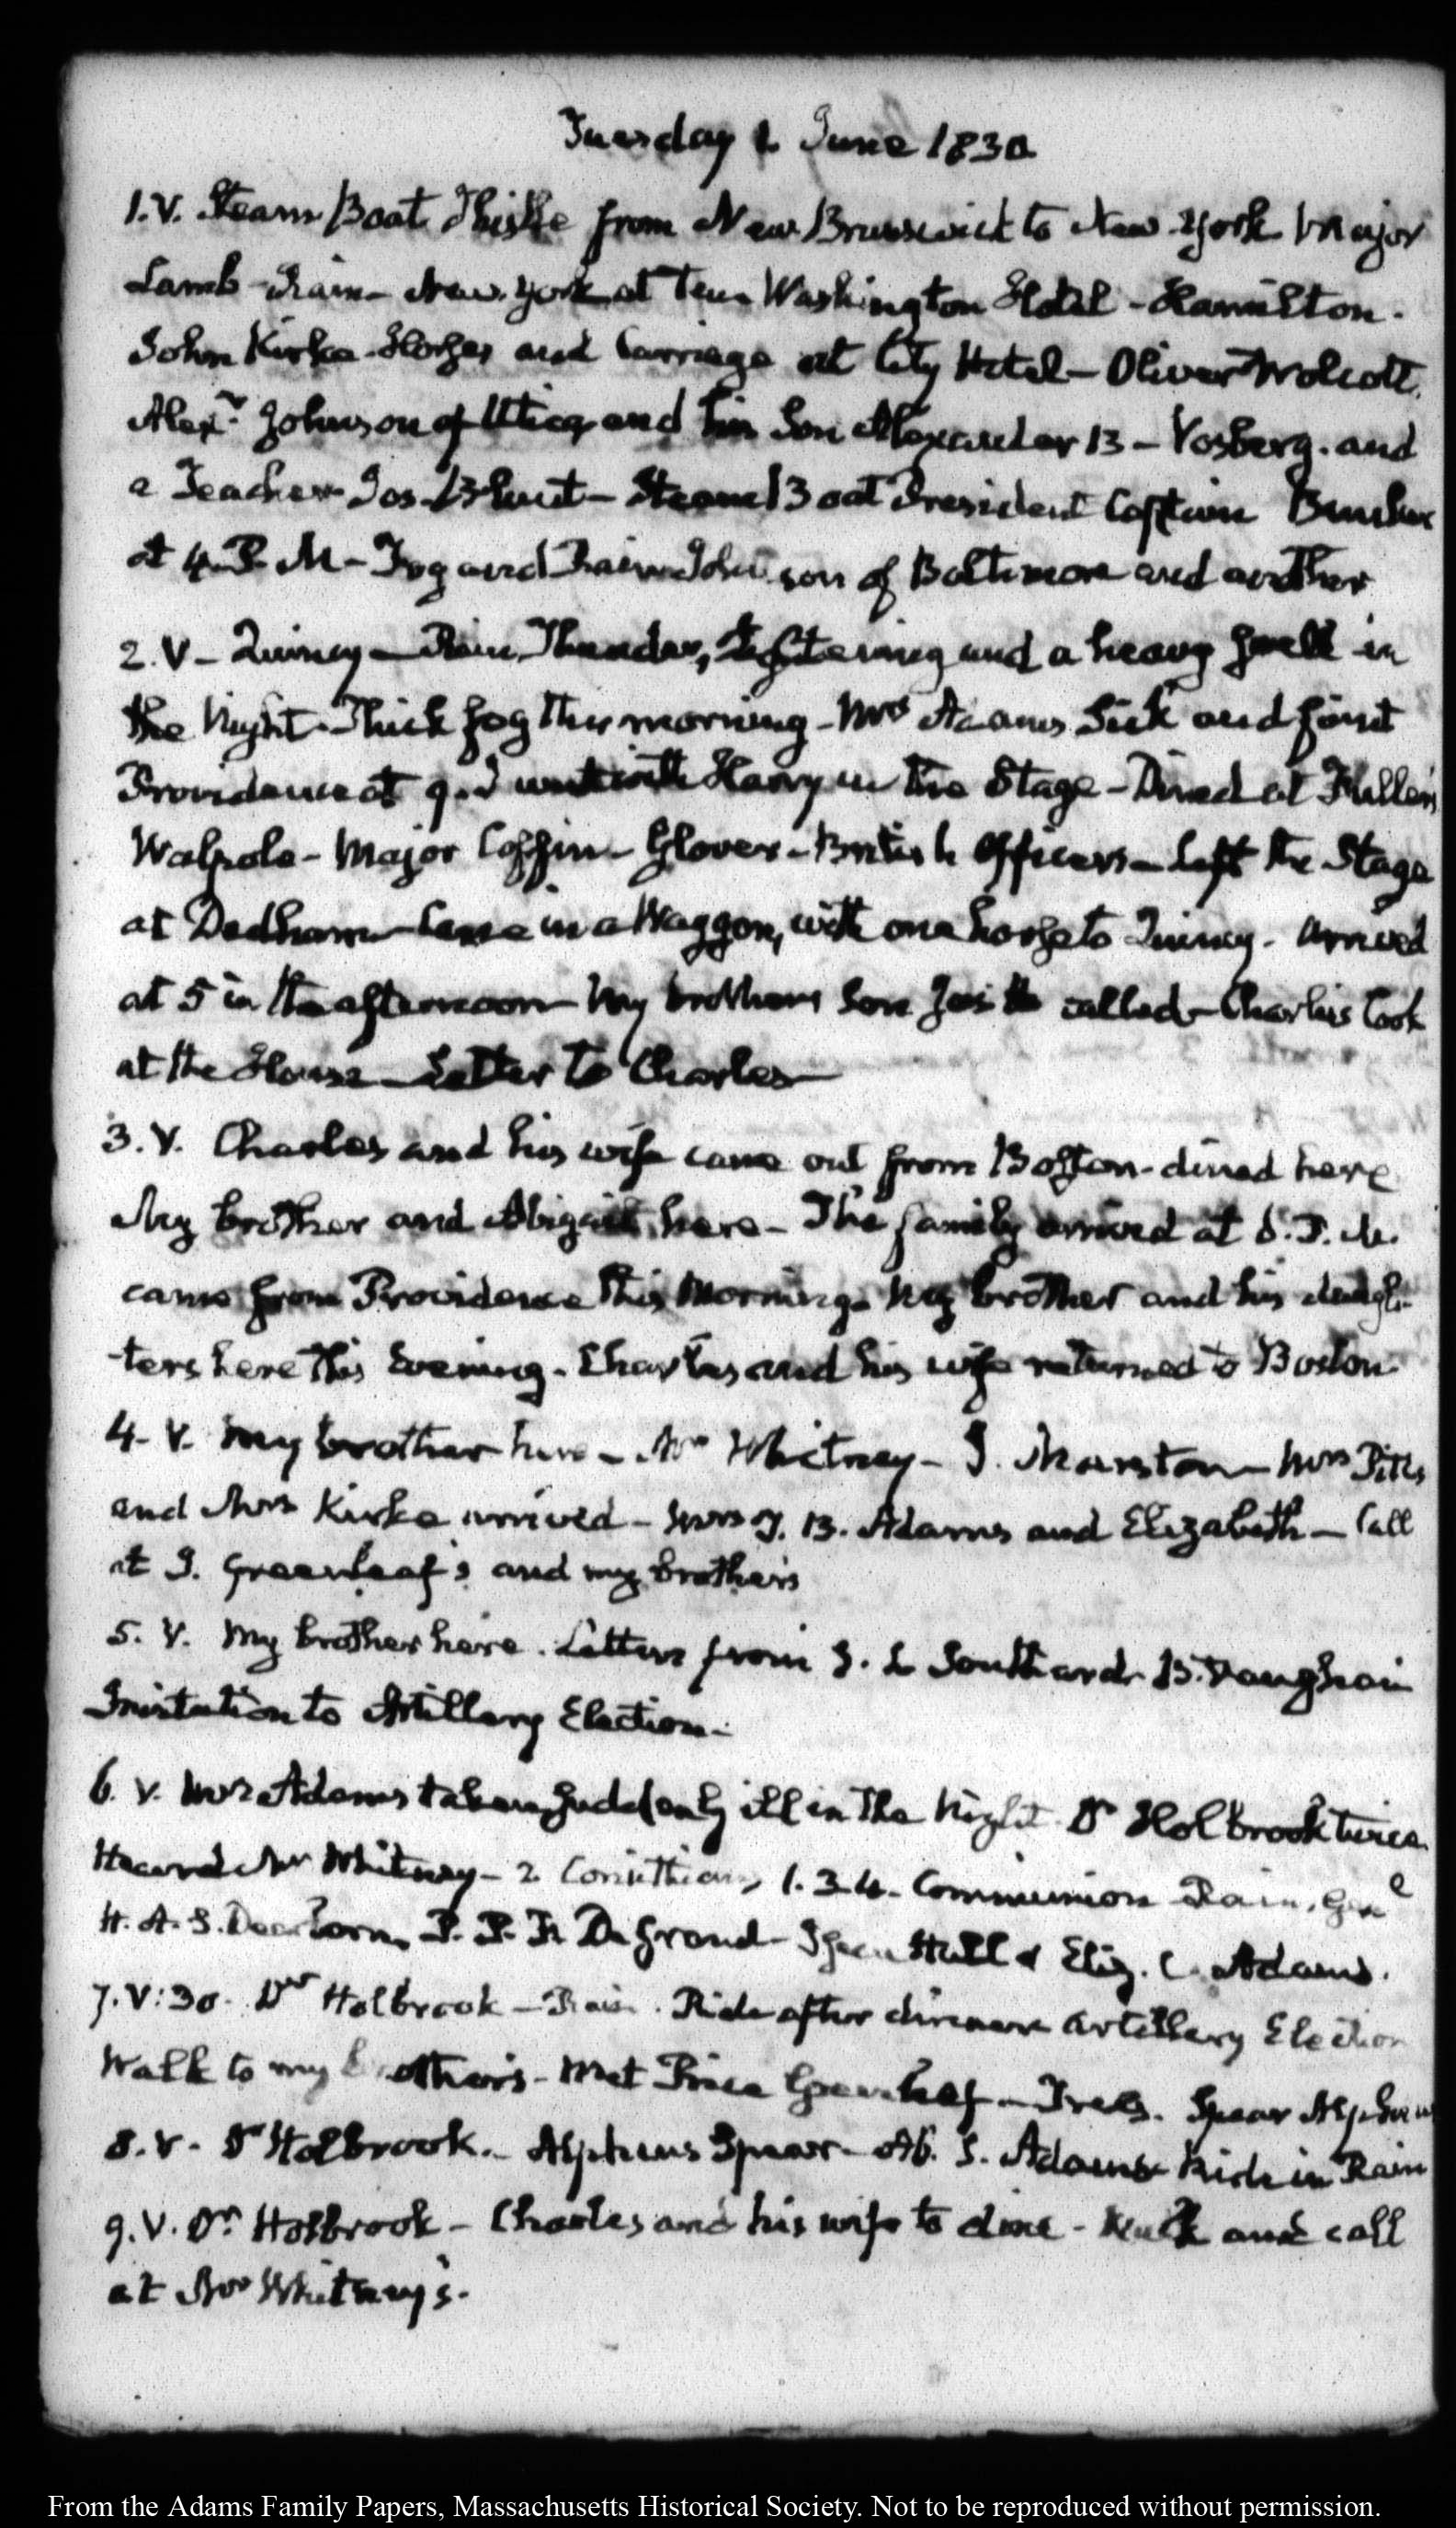 Tuesday 1. June 1830
1. V. Steam Boat Thistle from New Brunswick to New-York Major
Lamb - Rain - New-York at Ten Washington Hotel - Hamilton.
John Kirke - Horses and Carriage at City Hotel - Oliver Wolcott,
Alexr. Johnson of Utica and his Son Alexander 13 - Vosberg. and
a Teacher Jos. Blunt - Steam Boat President Captain Bunker
at 4. P. M - Fog and Rain Johnson of Baltimore and another
2. V - Quincy - Rain, Thunder, Lightening and a heavy Swell in
the Night - Thick fog this morning - Mrs Adams Sick and faint
Providence at 9. I went with Harry in the Stage - Dined at Fuller's
Walpole - Major Coffin - Glover - British Officers - Left the Stage
at Dedham - Came in a Waggon, with one horse to Quincy - arrived
at 5 in the afternoon - My brothers Son called - Charles Cook
at the House - Letter to Charles -
3. V. Charles and his wife came out from Boston - dined here
My brother and Abigail here - The family arrived at 8. P. M.
came from Providence this Morning - My brother and his daugh-
ters here this Evening. Charles and his wife returned to Boston
4 - V. My brother here - Mr Whitney - J. Marston - Mrs Pitts
and Mrs Kirke arrived - Mrs T. B. Adams and Elizabeth - Call
at J. Greenleaf's and my brother's
5. V. My brother here. Letters from S. L Southard. B. Vaughan
Invitation to Artillery Election -
6. V. Mrs Adams taken suddenly ill in the Night. Dr Holbrook twice.
Heard Mr Whitney - 2 Corinthians 1. 3. 4. Communion - Rain. Genl
H. A. S. Dearborn, P. P. F. Degrand - Hull & Eliz. C. Adams.
7. V: 30. Dr Holbrook - Rain. Ride after dinner Artillery Election
Walk to my brother's - Met Price Greenleaf - Spear Alpheus
8. V. Dr Holbrook. - Alpheus Spear - Ab. S. Adams Ride in Rain
9. V. Dr Holbrook - Charles and his wife to dine - Walk and call
at Mr Whitney's.
From the Adams Family Papers, Massachusetts Historical Society. Not to be reproduced without permission.